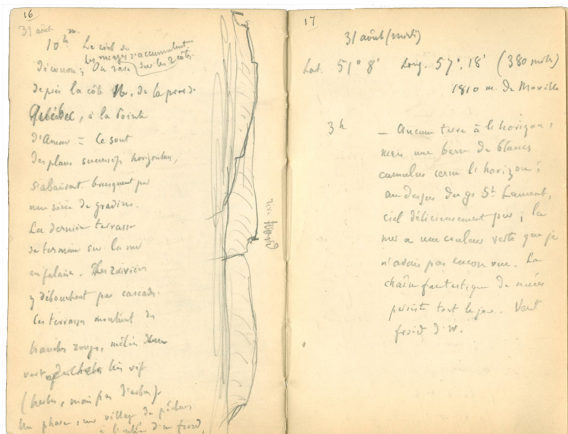 16
31 août
10h m. Le ciel se
découvre ; On
les nuages s'accumulent
sur les 2 côtés
depuis la côte N. de la prov. de
Québec, à la Pointe
d'Amour = Ce sont
des plans successifs horizontaux,
s'abaissant brusquement par
une série de gradins.
La dernière terrasse
se termine sur la mer
en falaise. Des rivières
y débouchent par cascades.
Les terrasses montrent des
tranches rouges,
vert très vif
(herbes, mais pas d'arbres)
Un phare, un village de pêcheurs
à l'entrée d'un fiord,
Nord
17
31 août (mardi)
Lat. 51° 8' Long. 57°. 18' (380 mille)
1810 m. de Moville
3h — Aucune terre à l'horizon,
mais une barre de blancs
cumulus cerne l'horizon ;
au-dessus du go St Laurent,
ciel délicieusement pur ; la
mer a une couleur verte que je
n'avais pas encore vue. La
chaîne fantastique de nuées
persiste tout le jour. Vent
froid d'W.